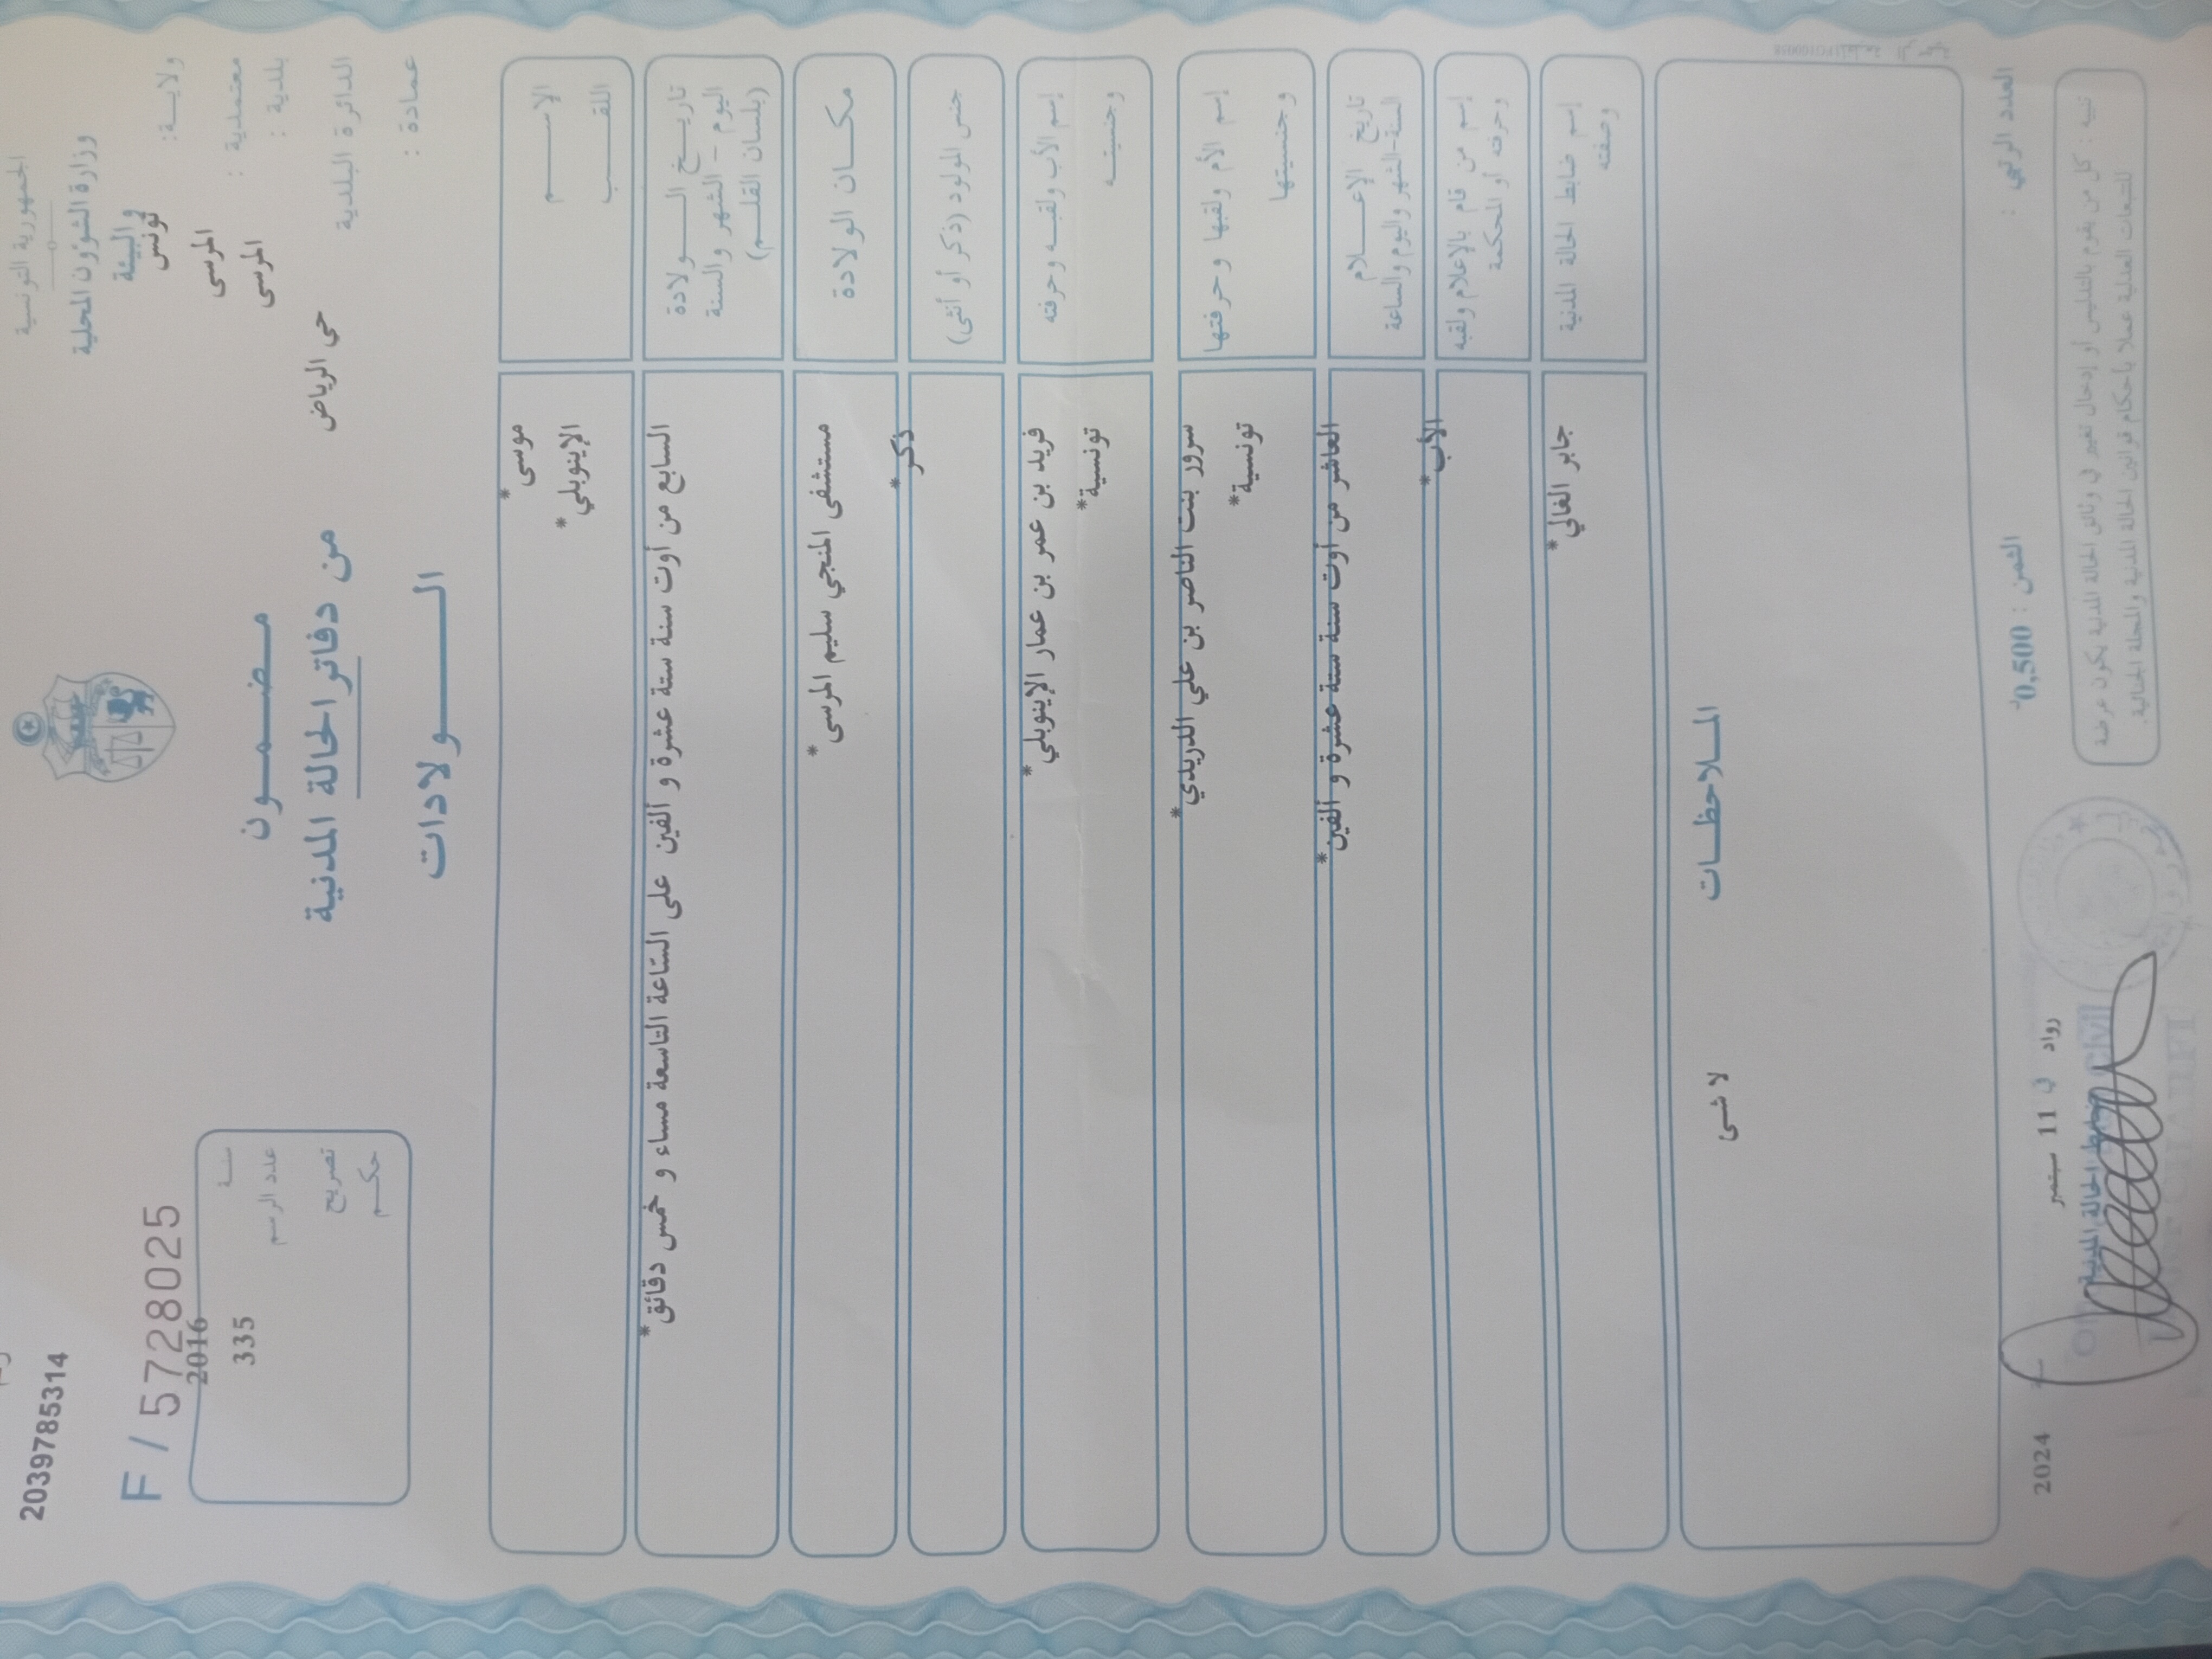 الجمهورية التونسية
وزارة الشؤون المحلية
والبيئة
ولايــة: تونس
معتمدية : المرسى
بلدية : المرسى
الدائرة البلدية حي الرياض
عمادة :
مضمــون
من دفاتر الحالة المدنية
الــولادات
2039785314
F / 5728025
سنــة 2016
عدد الرسم 335
تصريح
حكــم
الإســـم موسى*
اللقـــب الإينوبلي*
تاريــخ الــولادة
اليوم - الشهر والسنة
(بلسان القلــم)
السابع من أوت سنة ستة عشرة و ألفين على السّاعة التاسعة مساء و خمس دقائق*
مكــان الولادة مستشفى المنجي سليم المرسى*
جنس المولود (ذكر أو أنثى) ذكر*
إسم الأب ولقبــه وحرفته فريد بن عمر بن عمار الإينوبلي*
وجنسيتــه تونسية*
إسم الأم ولقبها وحرفتها سرور بنت الناصر بن علي الدريدي*
وجنسيتها تونسية*
تاريخ الإعــلام
السنة-الشهر واليوم والساعة
العاشر من أوت سنة ستة عشرة و ألفين*
إسم من قام بالإعلام ولقبه
وحرفته أو المحكمة
الأب*
إسم ضابط الحالة المدنية
وصفته
جابر الغالي*
المــلاحظــات
لا شى
العدد الرتبي :
الثمن : 0,500د
رواد في 11 سبتمبر سنة 2024
ضابط الحالة المدنية
تنبيه : كل من يقوم بالتدليس أو إدخال تغيير في وثائق الحالة المدنية يكون عرضة
للتتبعات العدلية عملا بأحكام قوانين الحالة المدنية والمجلة الجنائية.